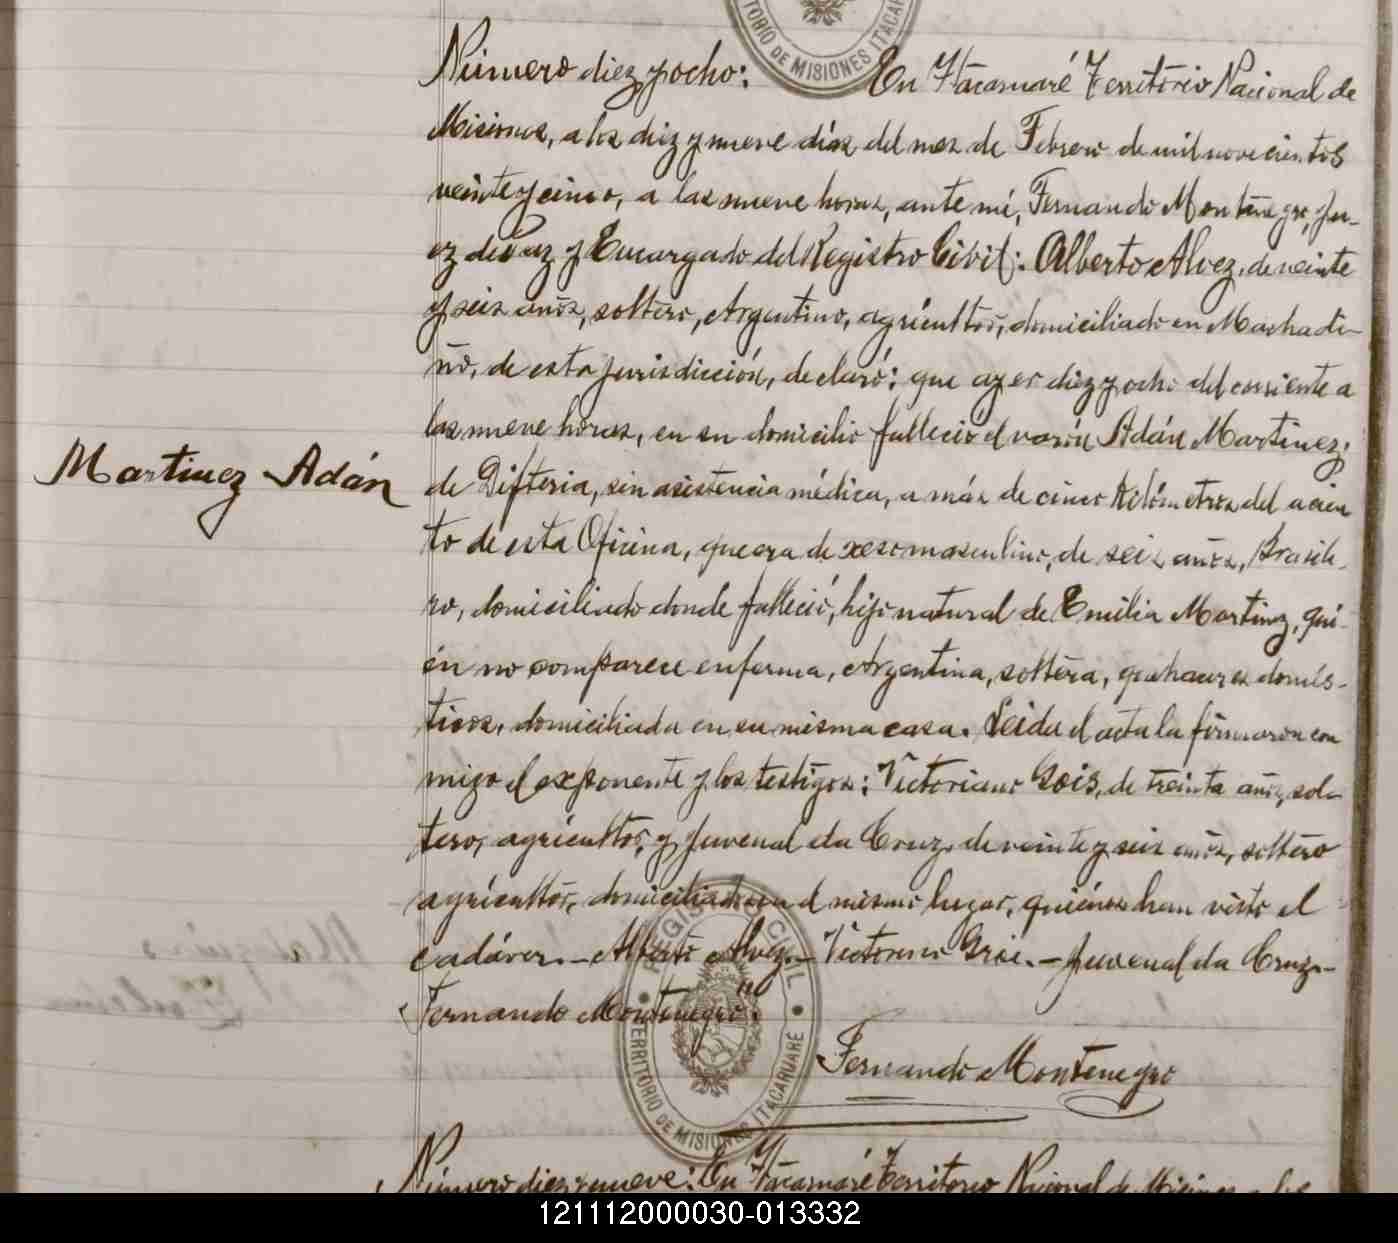 TORIO DE MISIONES ITACAR
Número diez y ocho: En Itacaruaré Territorio Nacional de
Misiones, a los diez y nueve días del mes de Febrero de mil novecientos
veinte y cinco, a las nueve horas, ante mí, Fernando Montenegro, Ju-
ez de Paz y Encargado del Registro Civil: Alberto Alvez, de veinte
y seis años, soltero, Argentino, agricultor, domiciliado en Machadi-
ño, de esta jurisdicción, declaró: que ayer diez y ocho del corriente a
las nueve horas, en su domicilio falleció el varón Adán Martinez,
Martinez Adán
de Difteria, sin asistencia médica, a más de cinco kilómetros del acien
to de esta Oficina, que era de xeso masculino, de seis años, Brasile-
ro, domiciliado donde falleció, hijo natural de Emilia Martinez, qui-
én no comparece enferma, Argentina, soltera, quehaceres domés-
ticos, domiciliada en su misma casa. Leida el acta la firmaron con
migo el exponente y los testigos: Victoriano Gois, de treinta años, sol-
tero, agricultor, y Juvenal da Cruz, de veinte y seis años, soltero
agricultor, domiciliados en el mismo lugar, quiénes han visto el
cadáver.- Alberto Alvez.- Victoriano Gois.- Juvenal da Cruz.-
Fernando Montenegro".
REGISTRO CIVIL
TERRITORIO DE MISIONES ITACARUARE
Fernando Montenegro
Número diez y nueve: En Itacaruaré Territorio Nacional de Misiones a los
121112000030-013332